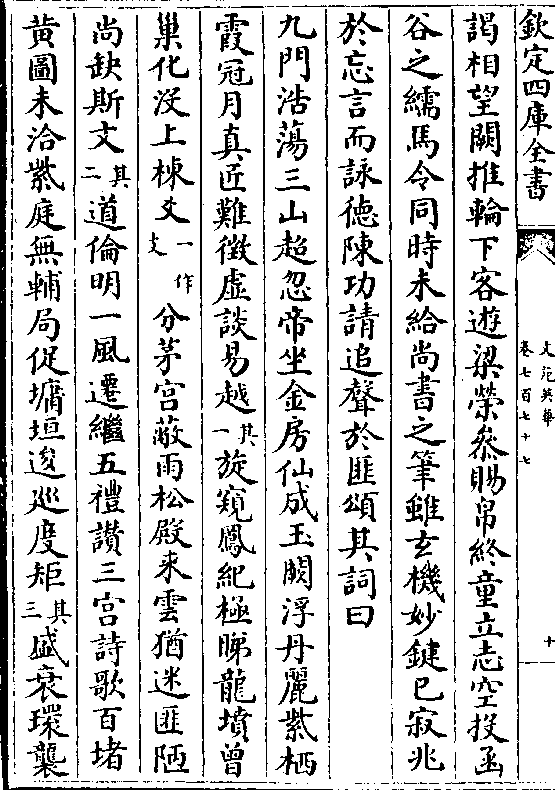 欽定四庫全書
文苑英華
卷七百七十七
十
謁相望闕推輪下客遊梁榮叅賜帛終童立志空投函
谷之繻馬令同時未給尚書之筆雖玄機妙鍵已寂兆
於忘言而詠德陳功請追聲於匪頌其詞曰
九門浩蕩三山超忽帝坐金房仙成玉闕浮丹麗紫栖
霞冠月真匠難徴虚談易越其一旋窺鳳紀極睇龍墳曾
巢化没上棟爻一作支分茅宫敞雨松殿來雲猶迷匪陋
尚缺斯文其二道倫明一風遷繼五禮讃三宫詩歌百堵
黄圖未洽紫庭無輔局促墉垣逡廵度矩其三盛衰環襲